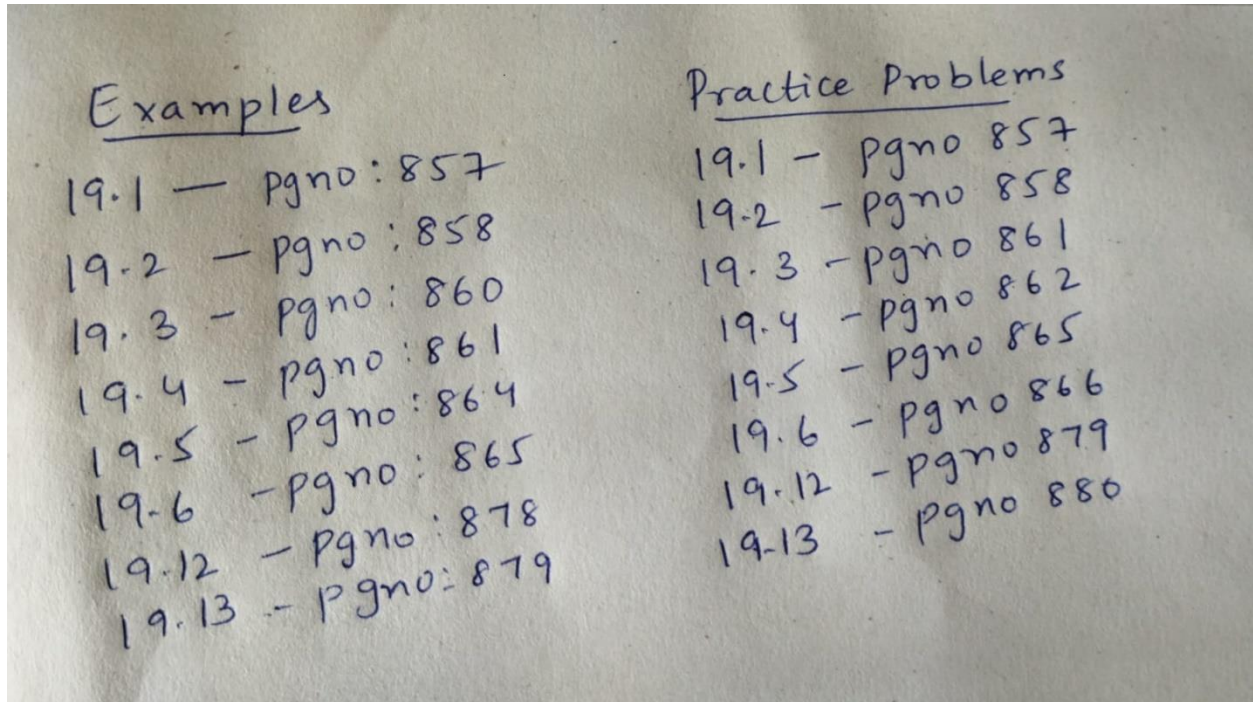 Examples
19.1 — pgno : 857
19.2 - pgno : 858
19.3 - pgno : 860
19.4 - pgno : 861
19.5 - pgno : 864
19.6 - pgno : 865
19.12 - pgno : 878
19.13 - pgno : 879
Practice Problems
19.1 - pgno 857
19.2 - pgno 858
19.3 - pgno 861
19.4 - pgno 862
19.5 - pgno 865
19.6 - pgno 866
19.12 - pgno 879
19.13 - pgno 880